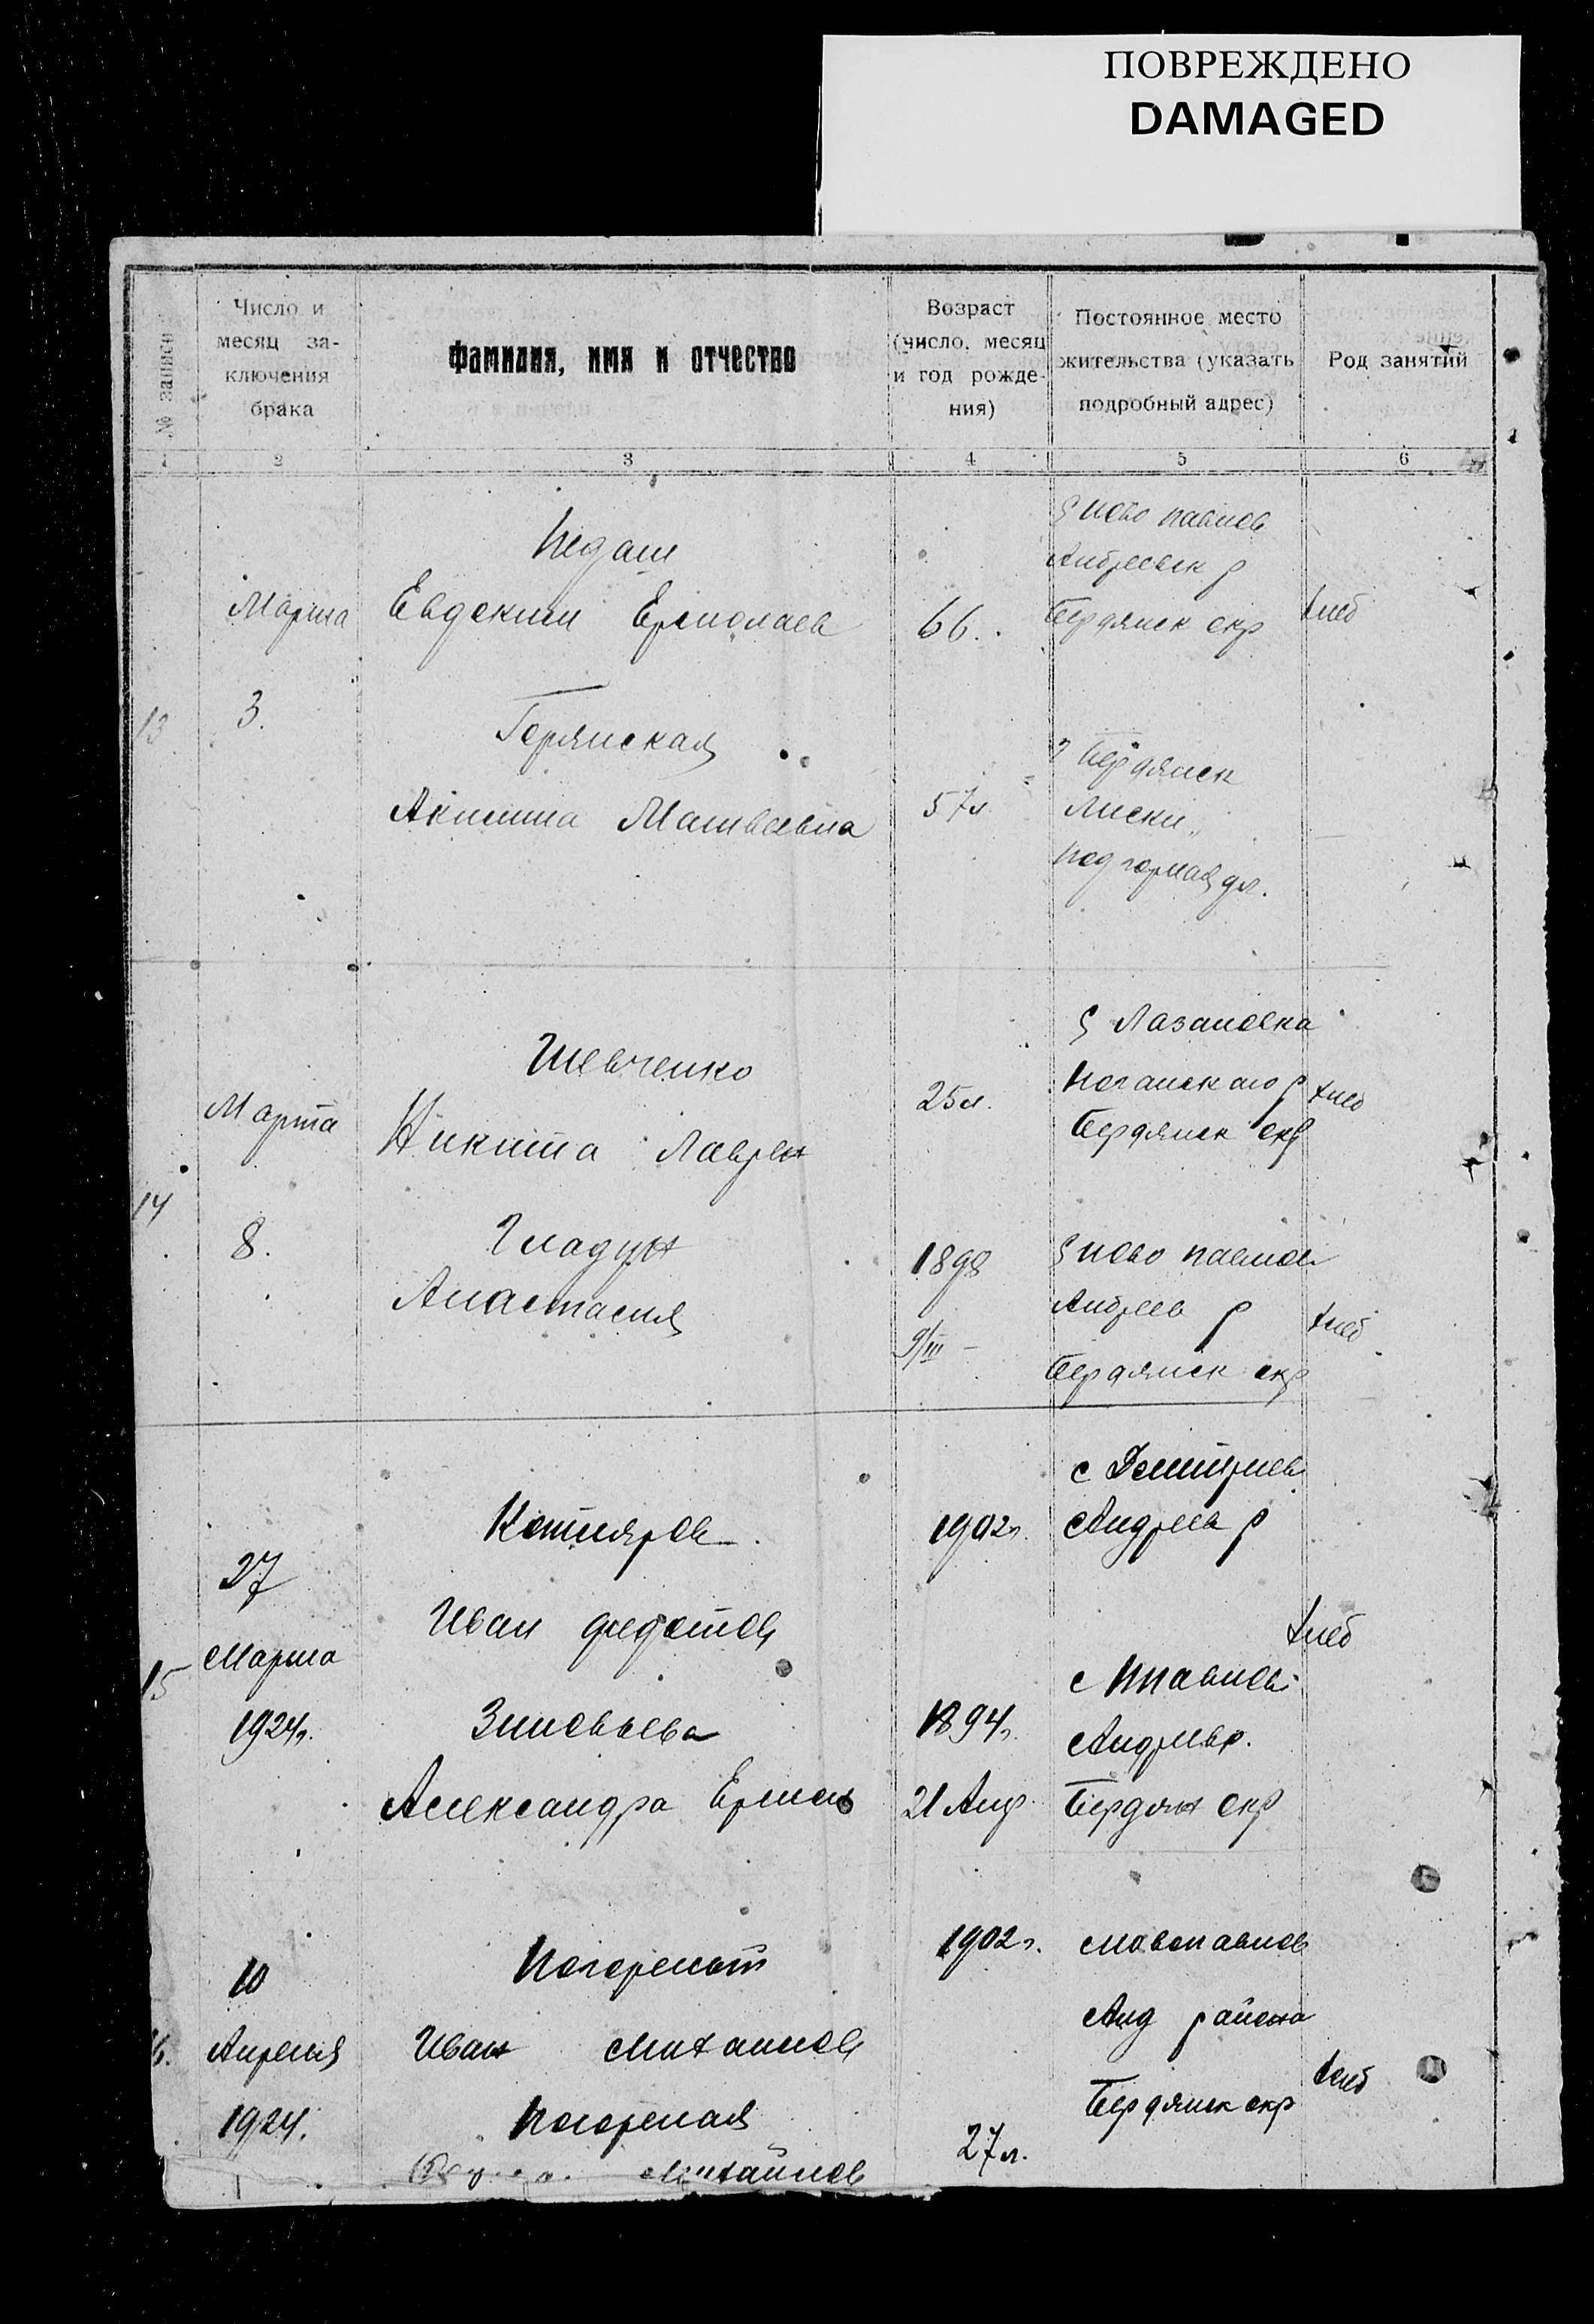 ПОВРЕЖДЕНО
DAMAGED
№ записи
Число и месяц за-
ключения брака
Фамилия, имя и отчество
Возраст (число, месяц и год рожде-
ния)
Постоянное место жительства (указать подробный адрес)
Род занятий
1 2 3 4 5 6
13
Марта
3.
Педаш
Евдоким Ермолаев
66.
с Ново павлов
Андреевск р
Бердянск окр
хлеб
Акилина Матвеевна
57л
г Бердянск
Лиски
Подгорная ул.
14
Марта
8.
Шевченко
Никита Лаврен
25л.
Ногайского р
Бердянск окр
хлеб
Гладун
Анастасия
1898
9/III
с Ново павлов
Андреев р
Бердянск окр
хлеб
15
27
Марта
1924г.
Котляров
Иван Федотов
1902г.
с Дмитриев
Андреев р
хлеб
Зиновьева
Александра Ермол
1894г.
21 Апр
с Нпавлов
Андреев р.
Бердян окр
16.
10
Апреля
1924.
Погорелов
Иван Михайлов
1902г.
с Новопавлов
Анд района
Бердянск окр
хлеб
Погорелая
Михайлов
27л.